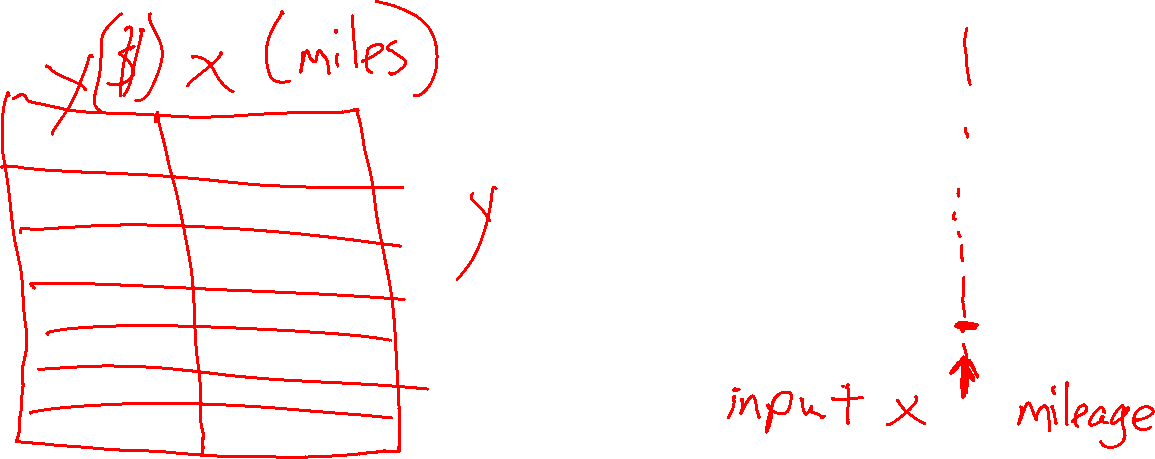 y($) x (miles)
y
input x mileage